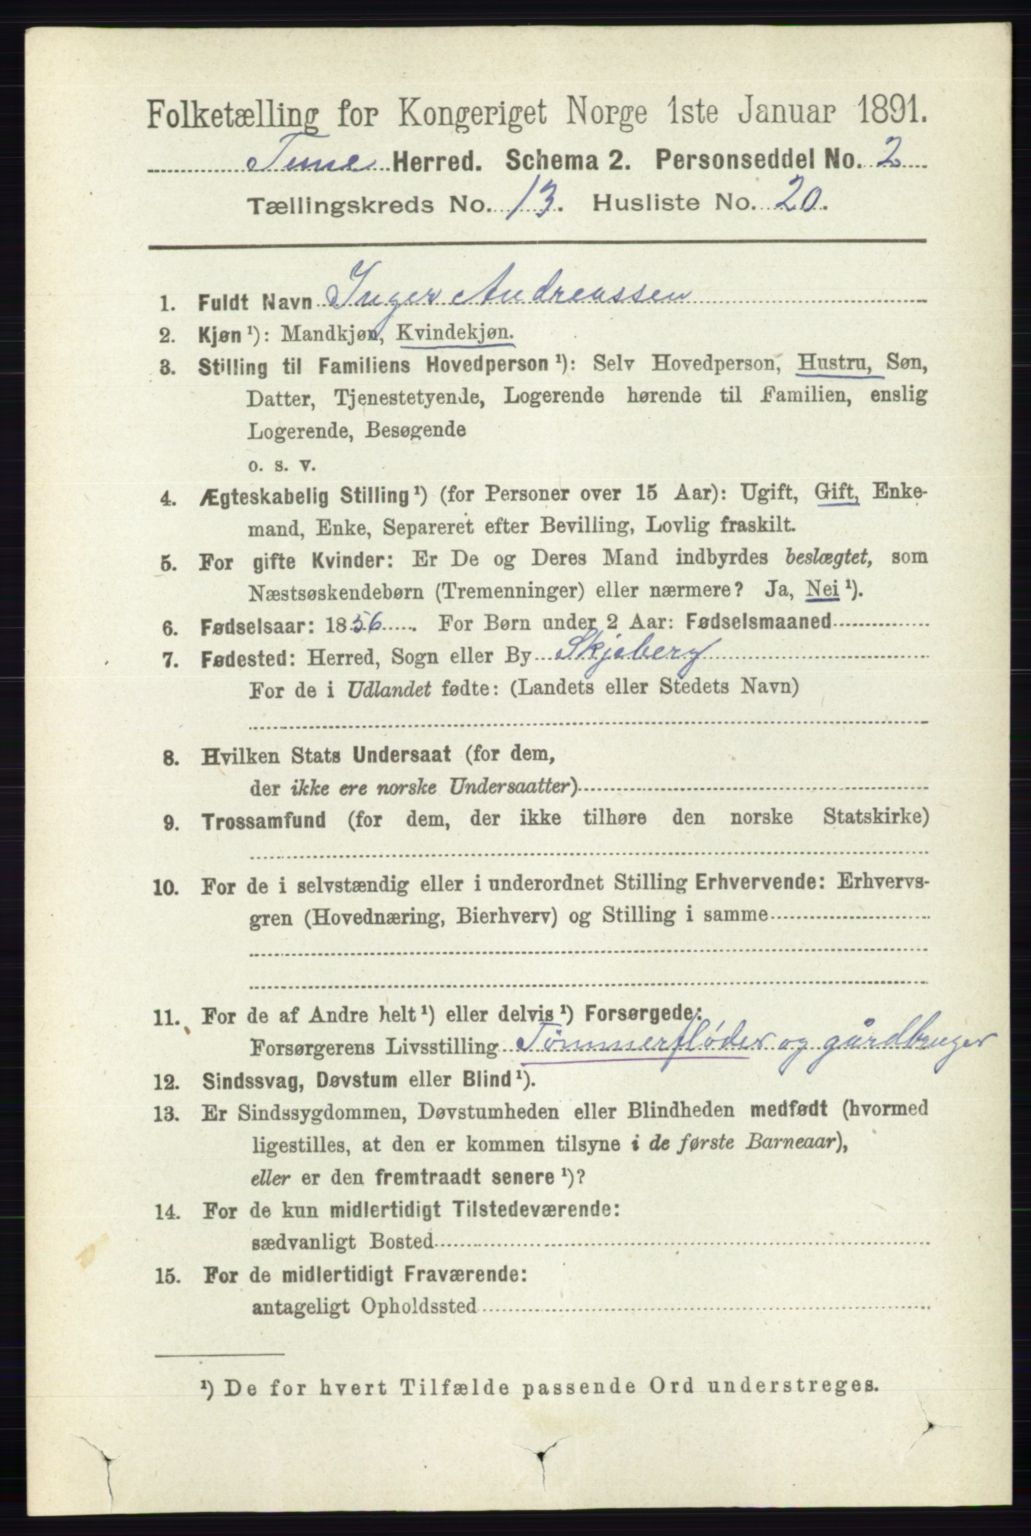 Folketælling for Kongeriget Norge 1ste Januar 1891.
Tune Herred. Schema 2. Personseddel No. 2
Tællingskreds No. 13. Husliste No. 20.
1. Fuldt Navn Inger Andreassen
2. Kjøn ¹): Mandkjøn, Kvindekjøn.
3. Stilling til Familiens Hovedperson ¹): Selv Hovedperson, Hustru, Søn,
Datter, Tjenestetyende, Logerende hørende til Familien, enslig
Logerende, Besøgende
o. s. v.
4. Ægteskabelig Stilling ¹) (for Personer over 15 Aar): Ugift, Gift, Enke-
mand, Enke, Separeret efter Bevilling, Lovlig fraskilt.
5. For gifte Kvinder: Er De og Deres Mand indbyrdes beslægtet, som
Næstsøskendebørn (Tremenninger) eller nærmere? Ja, Nei ¹).
6. Fødselsaar: 1856. For Børn under 2 Aar: Fødselsmaaned
7. Fødested: Herred, Sogn eller By Skjeberg
For de i Udlandet fødte: (Landets eller Stedets Navn)
8. Hvilken Stats Undersaat (for dem,
der ikke ere norske Undersaatter)
9. Trossamfund (for dem, der ikke tilhøre den norske Statskirke)
10. For de i selvstændig eller i underordnet Stilling Erhvervende: Erhvervs-
gren (Hovednæring, Bierhverv) og Stilling i samme
11. For de af Andre helt ¹) eller delvis ¹) Forsørgede:
Forsørgerens Livsstilling Tømmerfløder og gårdbruger
12. Sindssvag, Døvstum eller Blind ¹).
13. Er Sindssygdommen, Døvstumheden eller Blindheden medfødt (hvormed
ligestilles, at den er kommen tilsyne i de første Barneaar),
eller er den fremtraadt senere ¹)?
14. For de kun midlertidigt Tilstedeværende:
sædvanligt Bosted
15. For de midlertidigt Fraværende:
antageligt Opholdssted
¹) De for hvert Tilfælde passende Ord understreges.